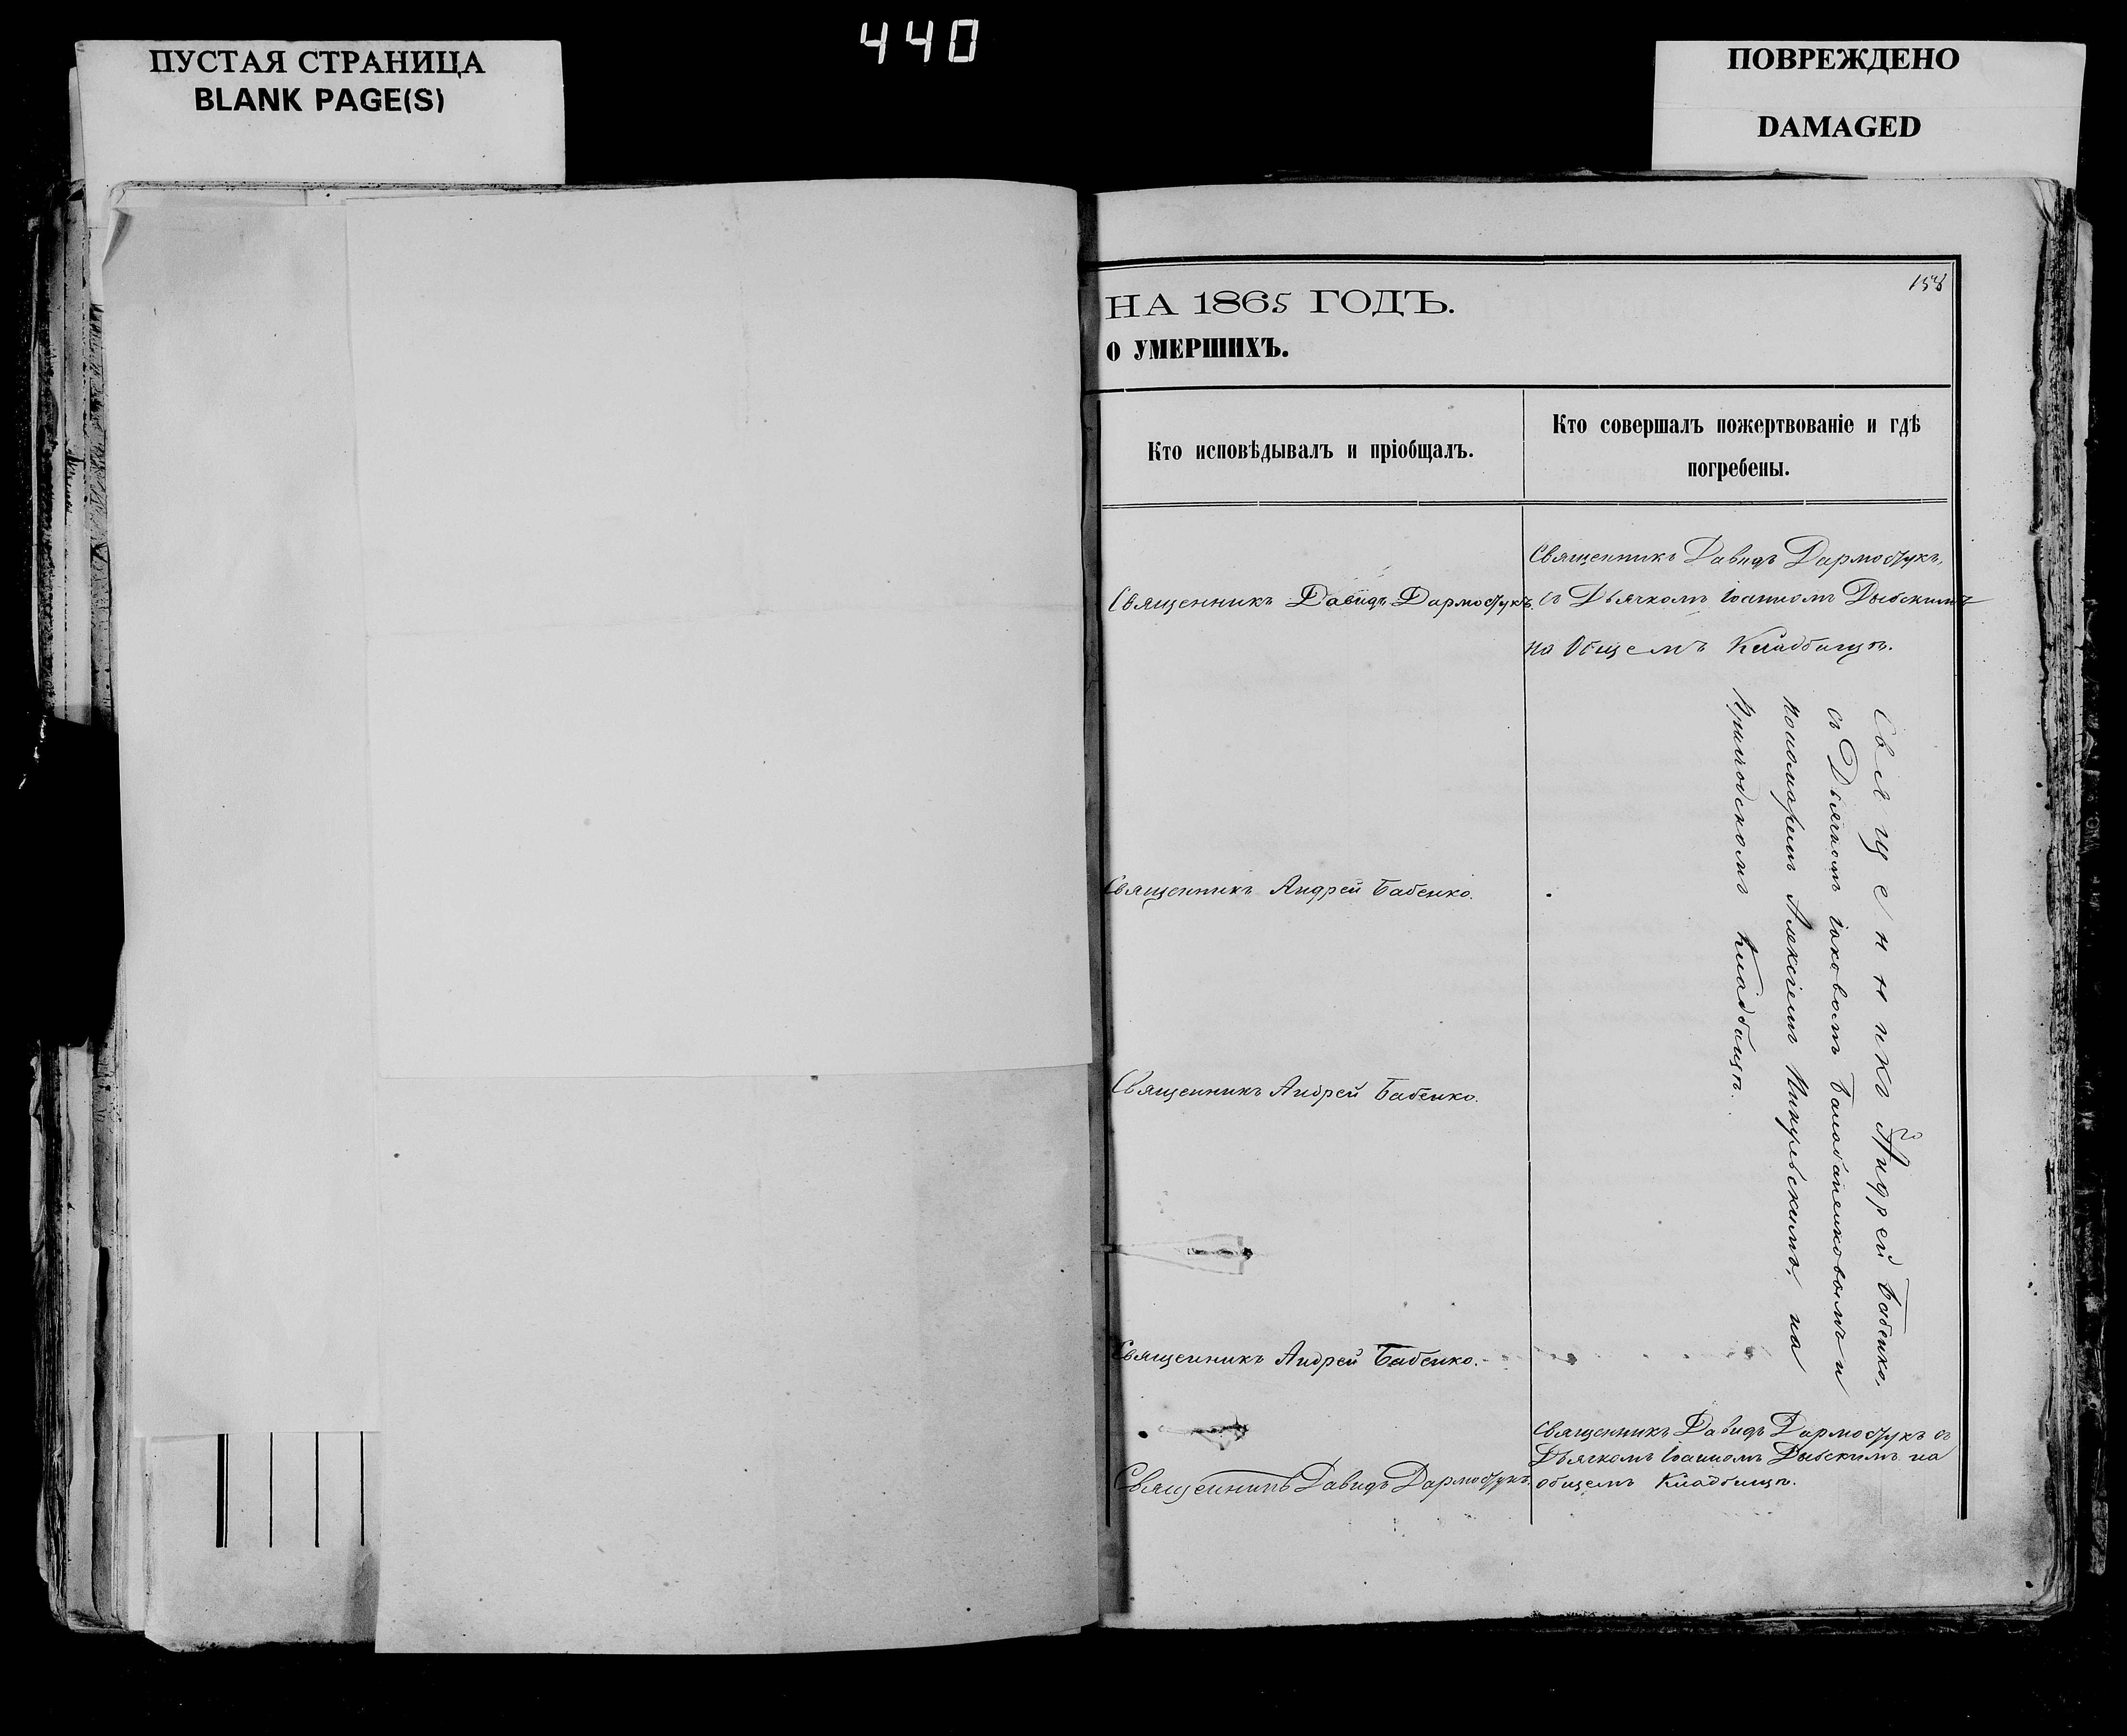 ПУСТАЯ СТРАНИЦА
BLANK PAGE(S)
440
ПОВРЕЖДЕНО
DAMAGED
158
НА 1865 ГОДЪ.
О УМЕРШИХЪ.
Кто исповѣдывалъ и пріобщалъ.
Кто совершалъ пожертвованіе и гдѣ
погребены.
Священникъ Давидъ Дармостукъ.
Священникъ Давидъ Дармостукъ,
съ Дьячкомъ Іоанномъ Рыбскимъ
на Общемъ Кладбищѣ.
Священникъ Андрей Бабенко.
Священникъ Андрей Бабенко.
Священникъ Андрей Бабенко.
Священникъ Андрей Бабенко,
съ Дьячкомъ Іаковомъ Балабаненковымъ и
пономаремъ Алексѣемъ на
Приходскомъ Кладбищѣ.
Священникъ Давидъ Дармостукъ.
Священникъ Давидъ Дармостукъ съ
Дьячкомъ Іоанномъ Рыбскимъ на
общемъ Кладбищѣ.